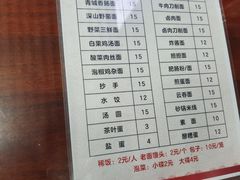 青城香肠面 15
深山野菌面 15
野菜三鲜面 15
白菜鸡汤面 15
酸菜肉丝面 15
泡椒鸡杂面 15
抄手 15
水饺 12
汤圆 15
茶叶蛋 3
盐蛋 4
牛肉刀削面
卤肉面
卤肉刀削面 15
炸酱面 12
担担面 12
肥肠粉/面 15
煎蛋面 12
云吞面 15
砂锅米线 15
素面 10
醪糟蛋 12
稀饭：2元/人 老面馒头：2元/个 包子：10元/笼
泡菜：小碟2元 大碟4元